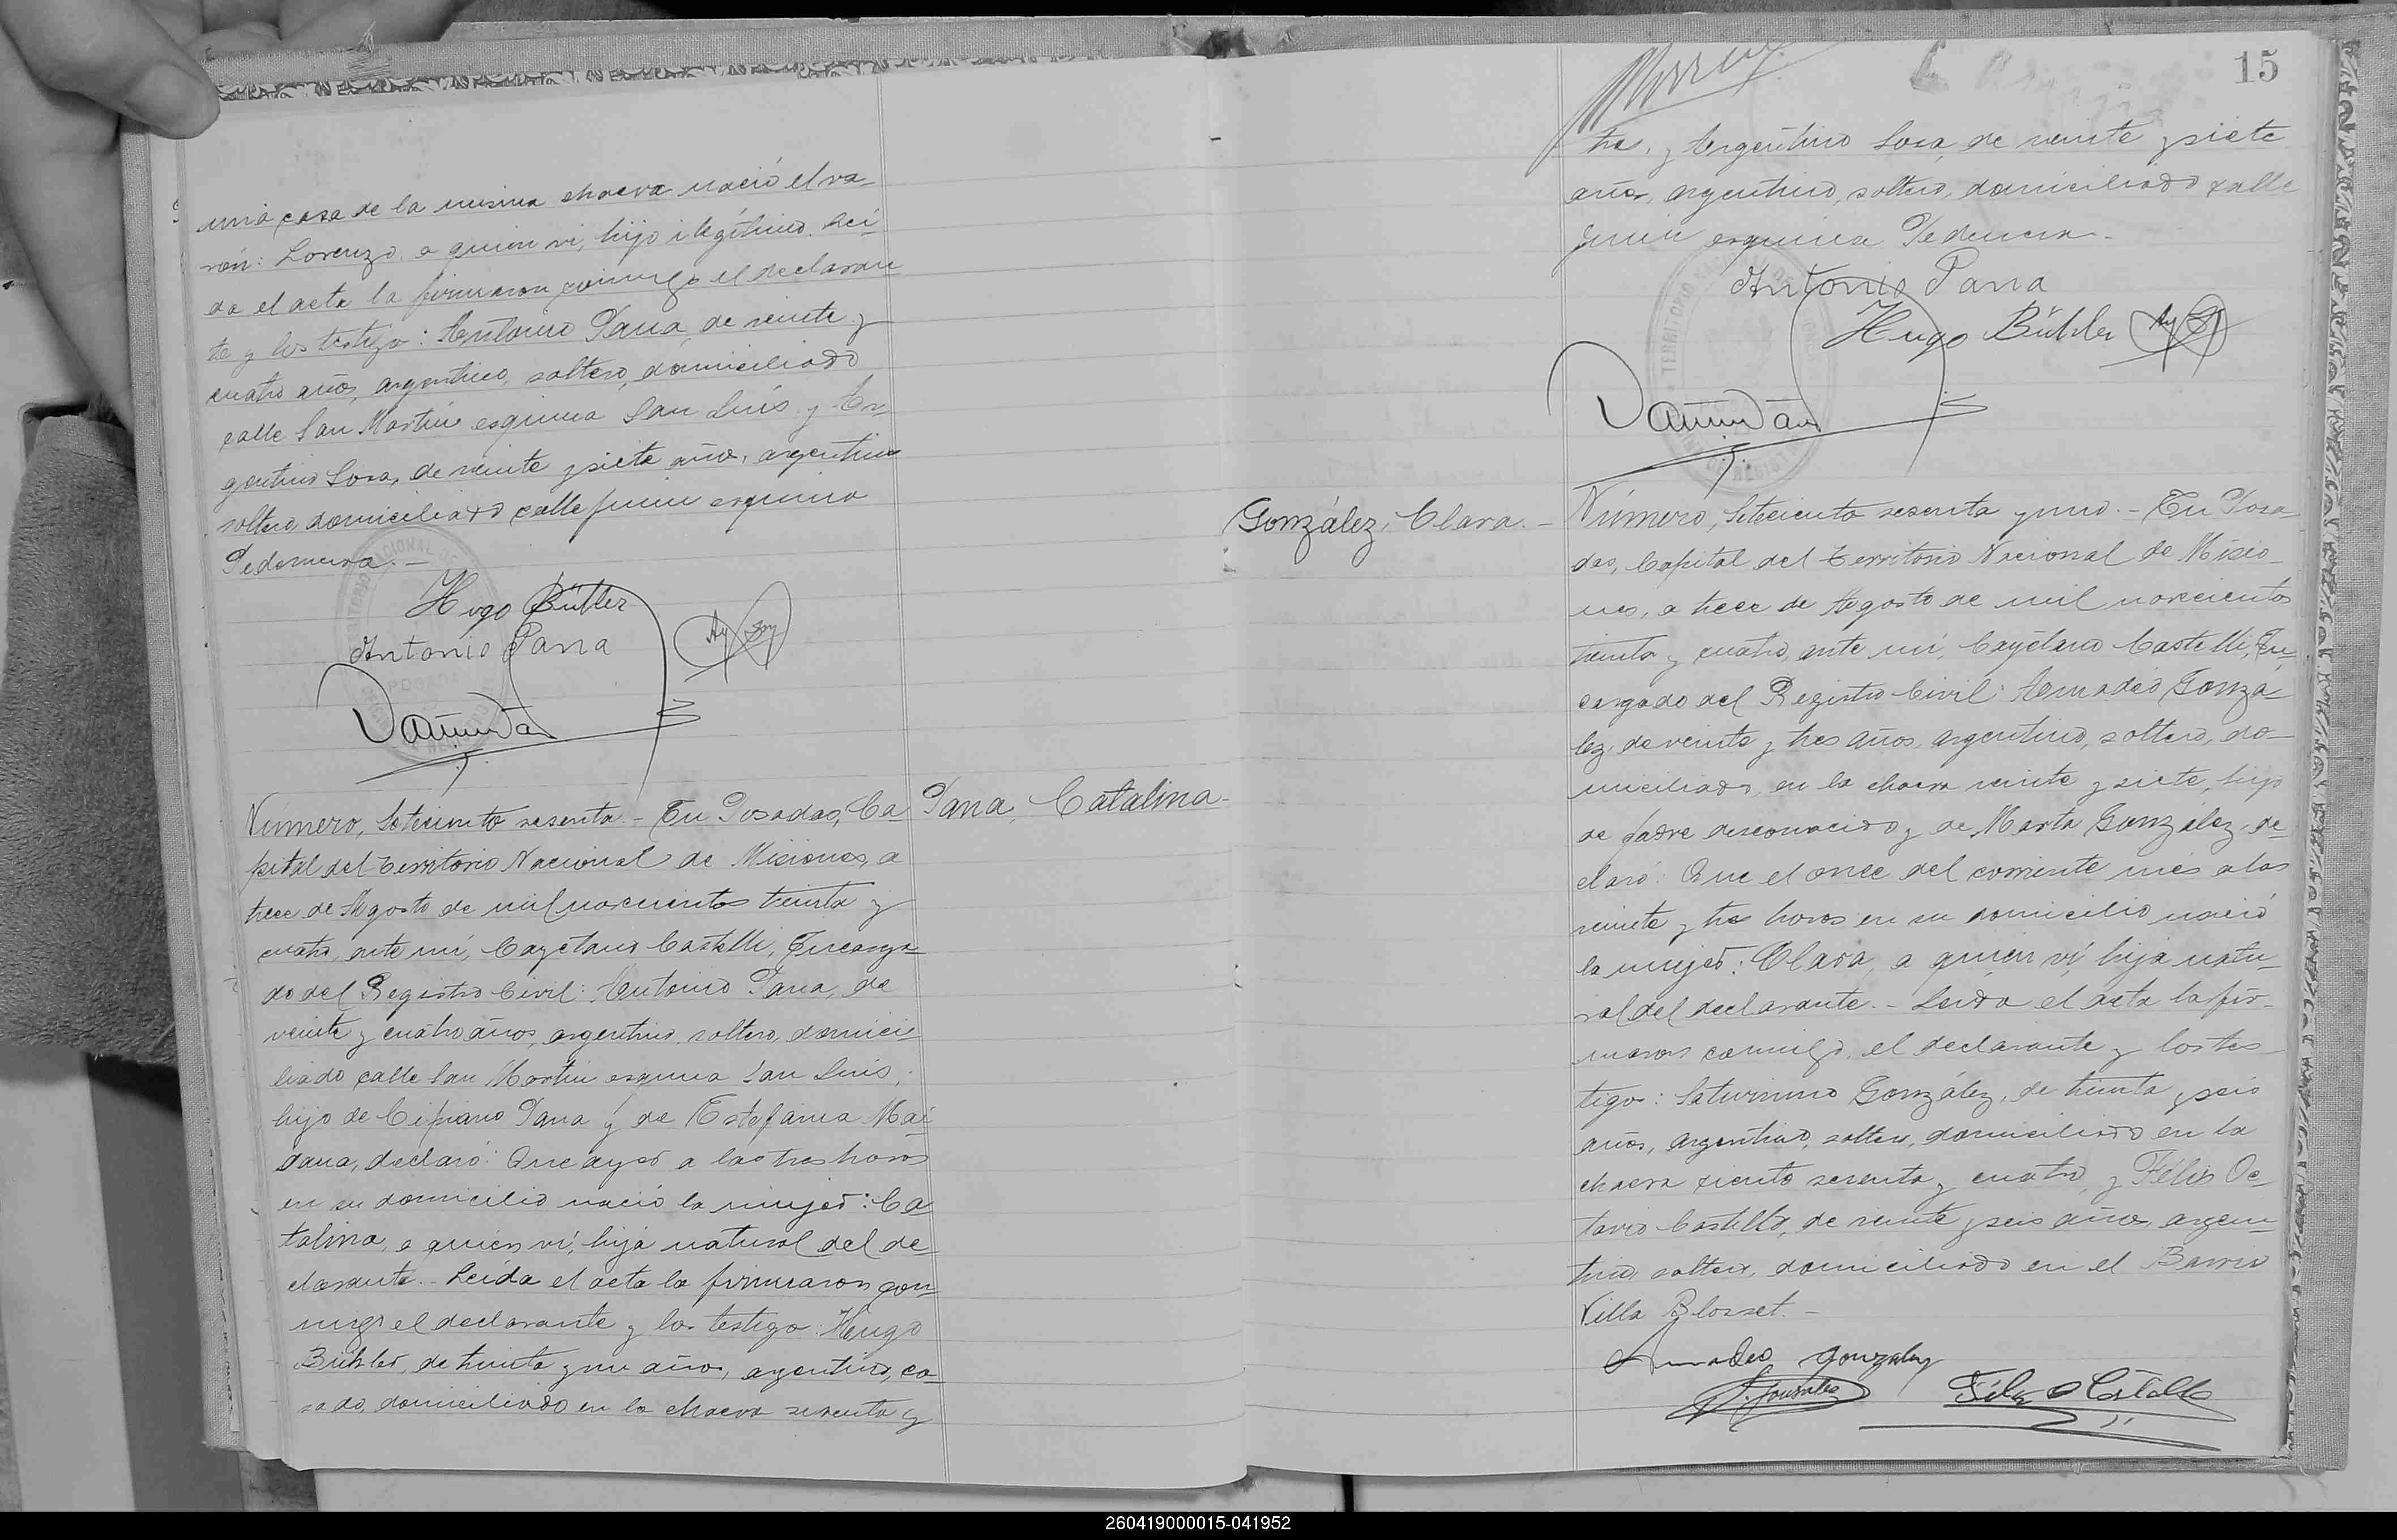 una casa de la misma chacra nació el va-
rón: Lorenzo, a quien vi, hijo ilegítimo. Leí-
da el acta la firmaron conmigo el declaran-
te y los testigo: Antonio Pana, de veinte y
cuatro años, argentino, soltero, domiciliado
calle San Martín esquina San Luis y Ar-
gentino Sosa, de veinte y siete años, argentino
soltero, domiciliado calle Junin esquina
Pedernera.-
Hugo Bühler
Antonio Pana
Número, Setecientos sesenta.- En Posadas, Ca-
Pana, Catalina.
pital del Territorio Nacional de Misiones, a
trece de Agosto de mil novecientos treinta y
cuatro, ante mí, Cayetano Castelli, Encarga-
do del Registro Civil: Antonio Pana, de
veinte y cuatro años, argentino, soltero, domici-
liado calle San Martin esquina San Luis,
hijo de Cipriano Pana y de Estefania Mai-
dana, declaró: Que ayer a las tres horas
en su domicilio nació la mujer: Ca-
talina, a quien ví, hija natural del de-
clarante.- Leída el acta la firmaron con-
migo el declarante y los testigo: Hugo
Bühler, de treinta y un años, argentino, ca-
sado, domiciliado en la chacra sesenta y
15
tres, y Argentino Sosa, de veinte y siete
años, argentino, soltero, domiciliado calle
Junin esquina Pedernera.-
Antonio Pana
Hugo Bühler
González, Clara.-
Número, Setecientos sesenta y uno.- En Posa-
das, Capital del Territorio Nacional de Misio-
nes, a trece de Agosto de mil novecientos
treinta y cuatro, ante mí, Cayetano Castelli, En-
cargado del Registro Civil: Amadeo Gonzá-
lez, de veinte y tres años, argentino, soltero, do-
miciliado en la chacra veinte y siete, hijo
de padre desconocido y de Marta González, de-
claró: Que el once del corriente mes a las
veinte y tres horas en su domicilio nació
la mujer: Clara, a quien ví, hija natu-
ral del declarante.- Leida el acta la fir-
maron conmigo, el declarante y los tes-
tigo: Saturnino González, de treinta y seis
años, argentino, soltero, domiciliado en la
chacra ciento sesenta y cuatro, y Félix Oc-
tavio Castillo, de veinte y seis años, argen-
tino, soltero, domiciliado en el Barrio
Villa Blosset.-
Amadeo Gonzalez
S. Gonzalez
Félix O Castillo
260419000015-041952